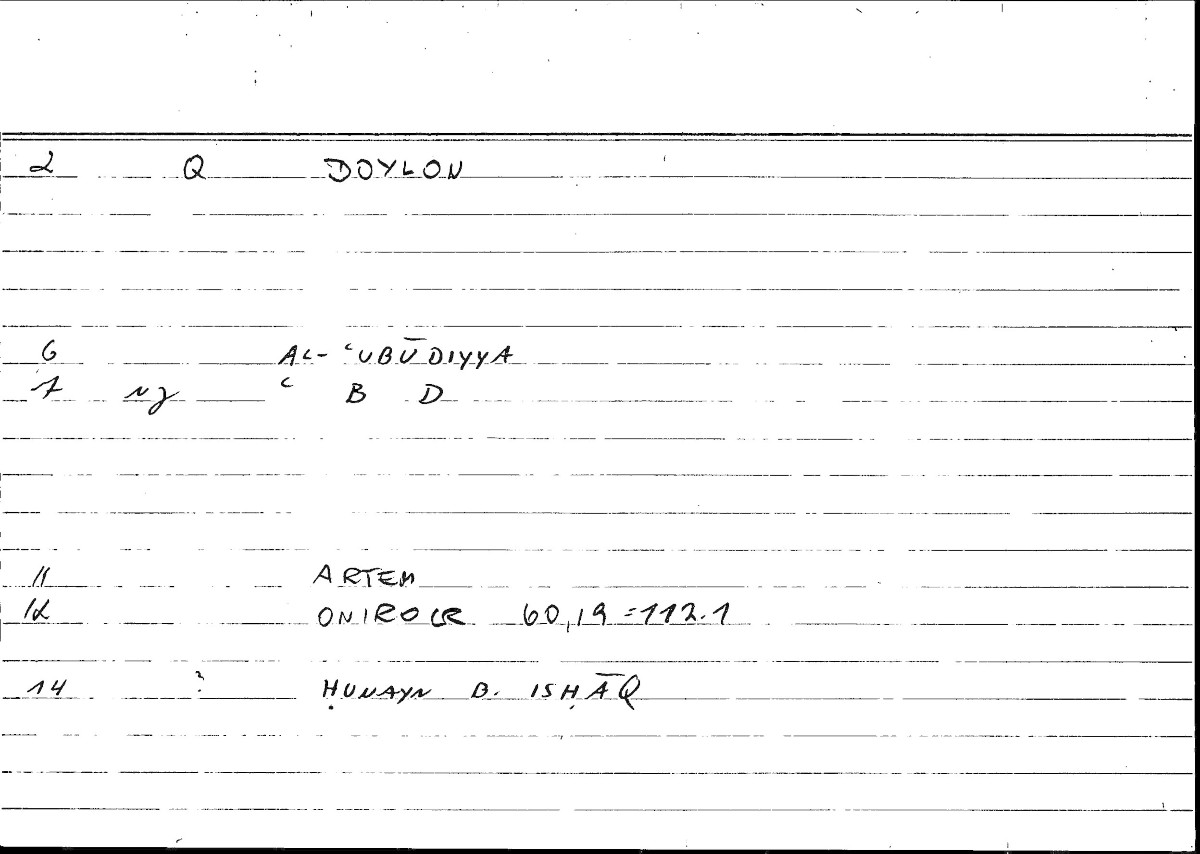 2 Q DOYLON
6 AL-ʿUBŪDIYYA
7 nj ʿ B D
11 ARTEM
12 ONIROCR 60,19 =112.1
14 ? ḤUNAYN B. ISḤĀQ